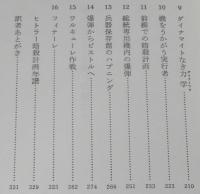 9 ダイナマイトなき力学 210
10 機をうかがう実行者 221
11 前線での暗殺計画 233
12 総統専用機内の爆弾 251
13 兵器保存館のハプニング 266
14 爆弾からピストルへ 274
15 ワルキューレ作戦 282
16 フィナーレ
ヒトラー暗殺計画年譜 329
訳者あとがき 331